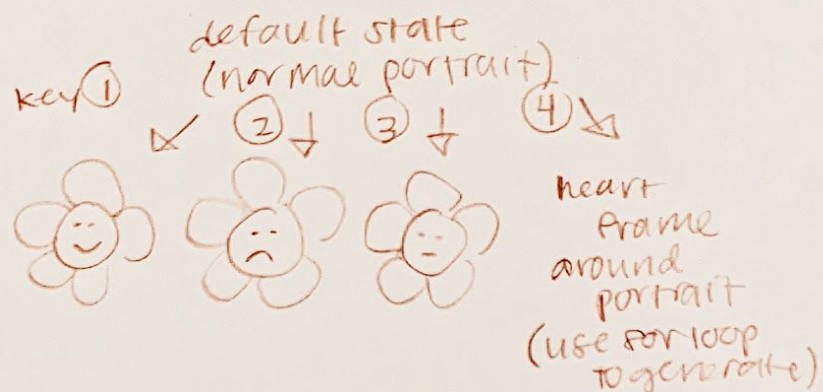 default state
(normal portrait)
key ①
②
③
④
heart
frame
around
portrait
(use for loop
to generate)